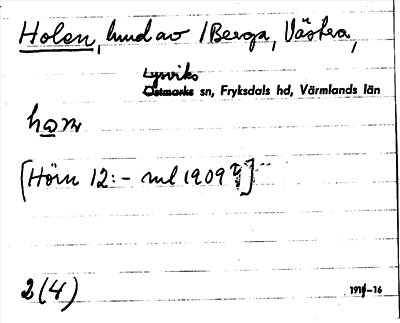 Holen, hmd av /Berga, Västra,
Lysviks
Östmarks sn, Fryksdals hd, Värmlands län
ham
[Hörn 12:- ml 1909
2(4)
1916-16